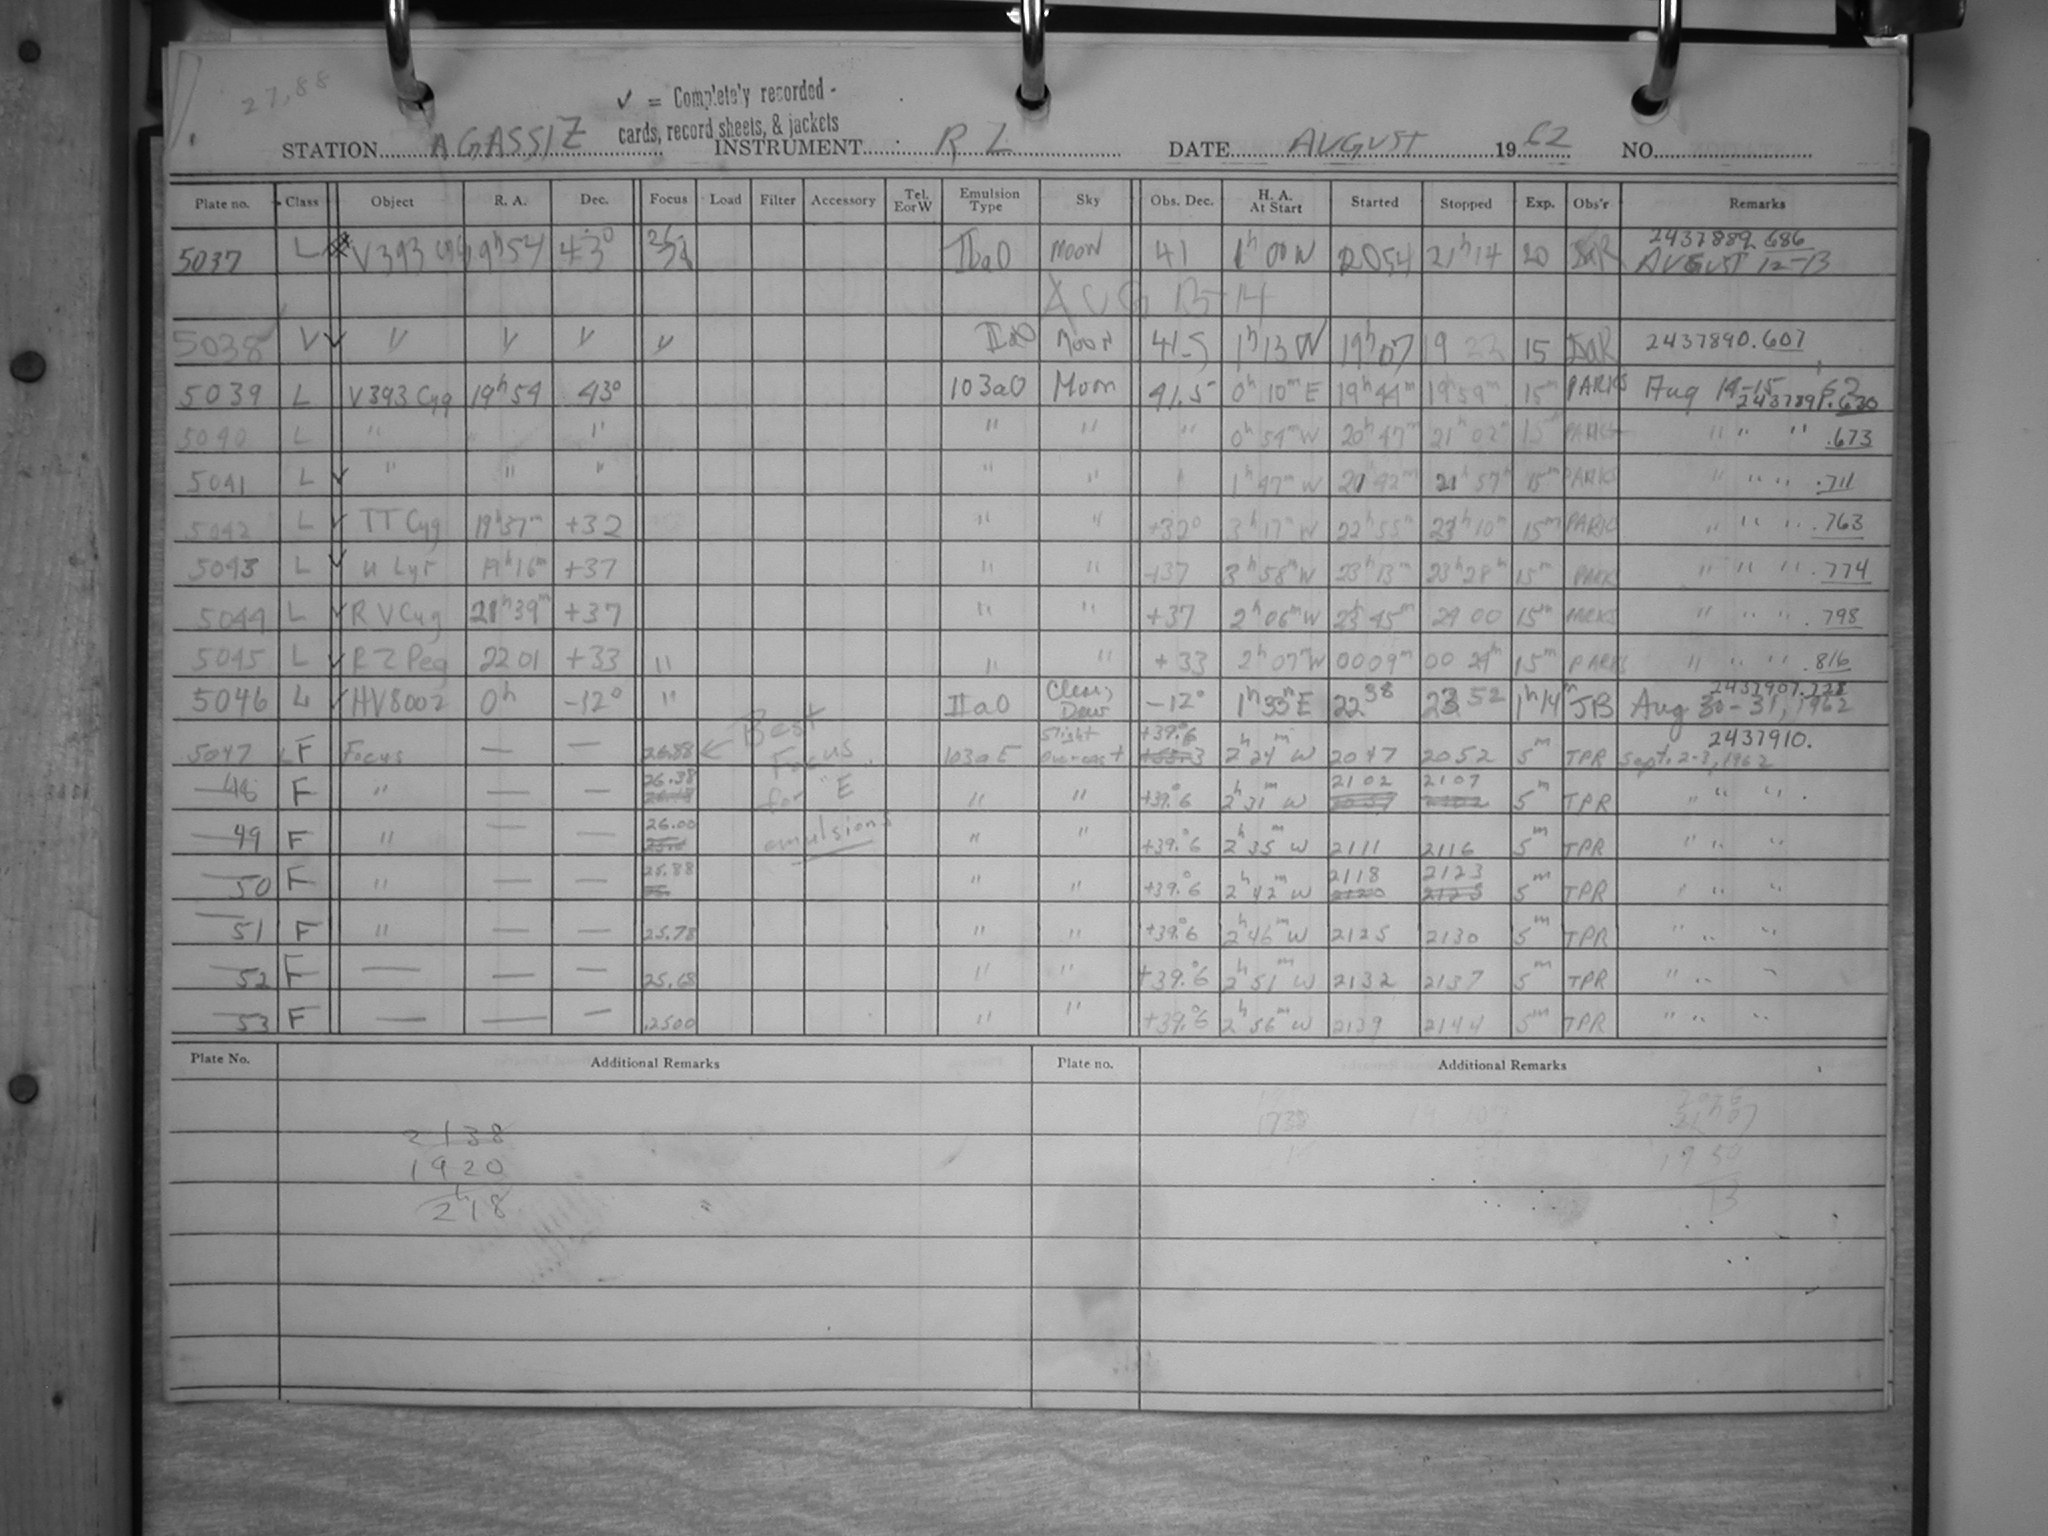 27,88
✓ = Completely recorded -
cards, record sheets, & jackets
STATION AGASSIZ INSTRUMENT R L DATE AUGUST 1962 NO.
Plate no. Class Object R. A. Dec. Focus Load Filter Accessory Tel. E or W Emulsion Type Sky Obs. Dec. H. A. At Start Started Stopped Exp. Obs'r Remarks
5037 L V393 Cyg 19h54 43° IIaO MOON 41 1h 00 W 2054 21h14 20 2437889.686 AUGUST 12-13
AUG 13-14
5038 V ✓ V V V V IIaO Moon 41.5 1h13 W 19h07 19 23 15 2437890.607
5039 L V393 Cyg 19h54 43° 103aO Moon 41.5 0h 10m E 19h44m 19h59m 15m PARKS Aug 14-15, 62 2437891.630
5040 L " " " " " 0h 54m W 20h47m 21h02m 15m PARKS " " " .673
5041 L ✓ " " " " " 1h 47m W 21h42m 21h57m 15m PARKS " " " .711
5042 L ✓ TT Cyg 19h37m +32 " " +32° 3h17m W 22h55m 23h10m 15m PARKS " " " .763
5043 L ✓ u Lyr 19h16m +37 " " +37 3h58m W 23h13m 23h28m 15m PARKS " " " .774
5044 L ✓ RV Cyg 21h39m +37 " " +37 2h06m W 23h45m 24 00 15m PARKS " " " .798
5045 L ✓ RZ Peg 22 01 +33 " " " +33 2h07m W 0009m 00 24m 15m PARKS " " " .816
5046 L ✓ HV8002 0h -12° " IIaO Clear, Dew -12° 1h 33m E 2238 2352 1h14m JB 2437907.728 Aug 30-31, 1962
5047 F Focus — — 26.88 ← Best Focus for "E" emulsions 103aE Slight Overcast +39.°6 2h 24m W 2047 2052 5m TPR 2437910. Sept. 2-3, 1962
48 F " — — 26.38 " " +39.°6 2h 31m W 2102 2107 5m TPR " " "
49 F " — — 26.00 " " +39.°6 2h 35m W 2111 2116 5m TPR " " "
50 F " — — 25.88 " " +39.°6 2h 42m W 2118 2120 2123 2125 5m TPR " " "
51 F " — — 25.78 " " +39.°6 2h 46m W 2125 2130 5m TPR " " "
52 F — — — 25.68 " " +39.°6 2h 51m W 2132 2137 5m TPR " " "
53 F — — — 2500 " " +39.°6 2h 56m W 2139 2144 5m TPR " " "
Plate No. Additional Remarks Plate no. Additional Remarks
2138
1920
2h18
1738
1950
13